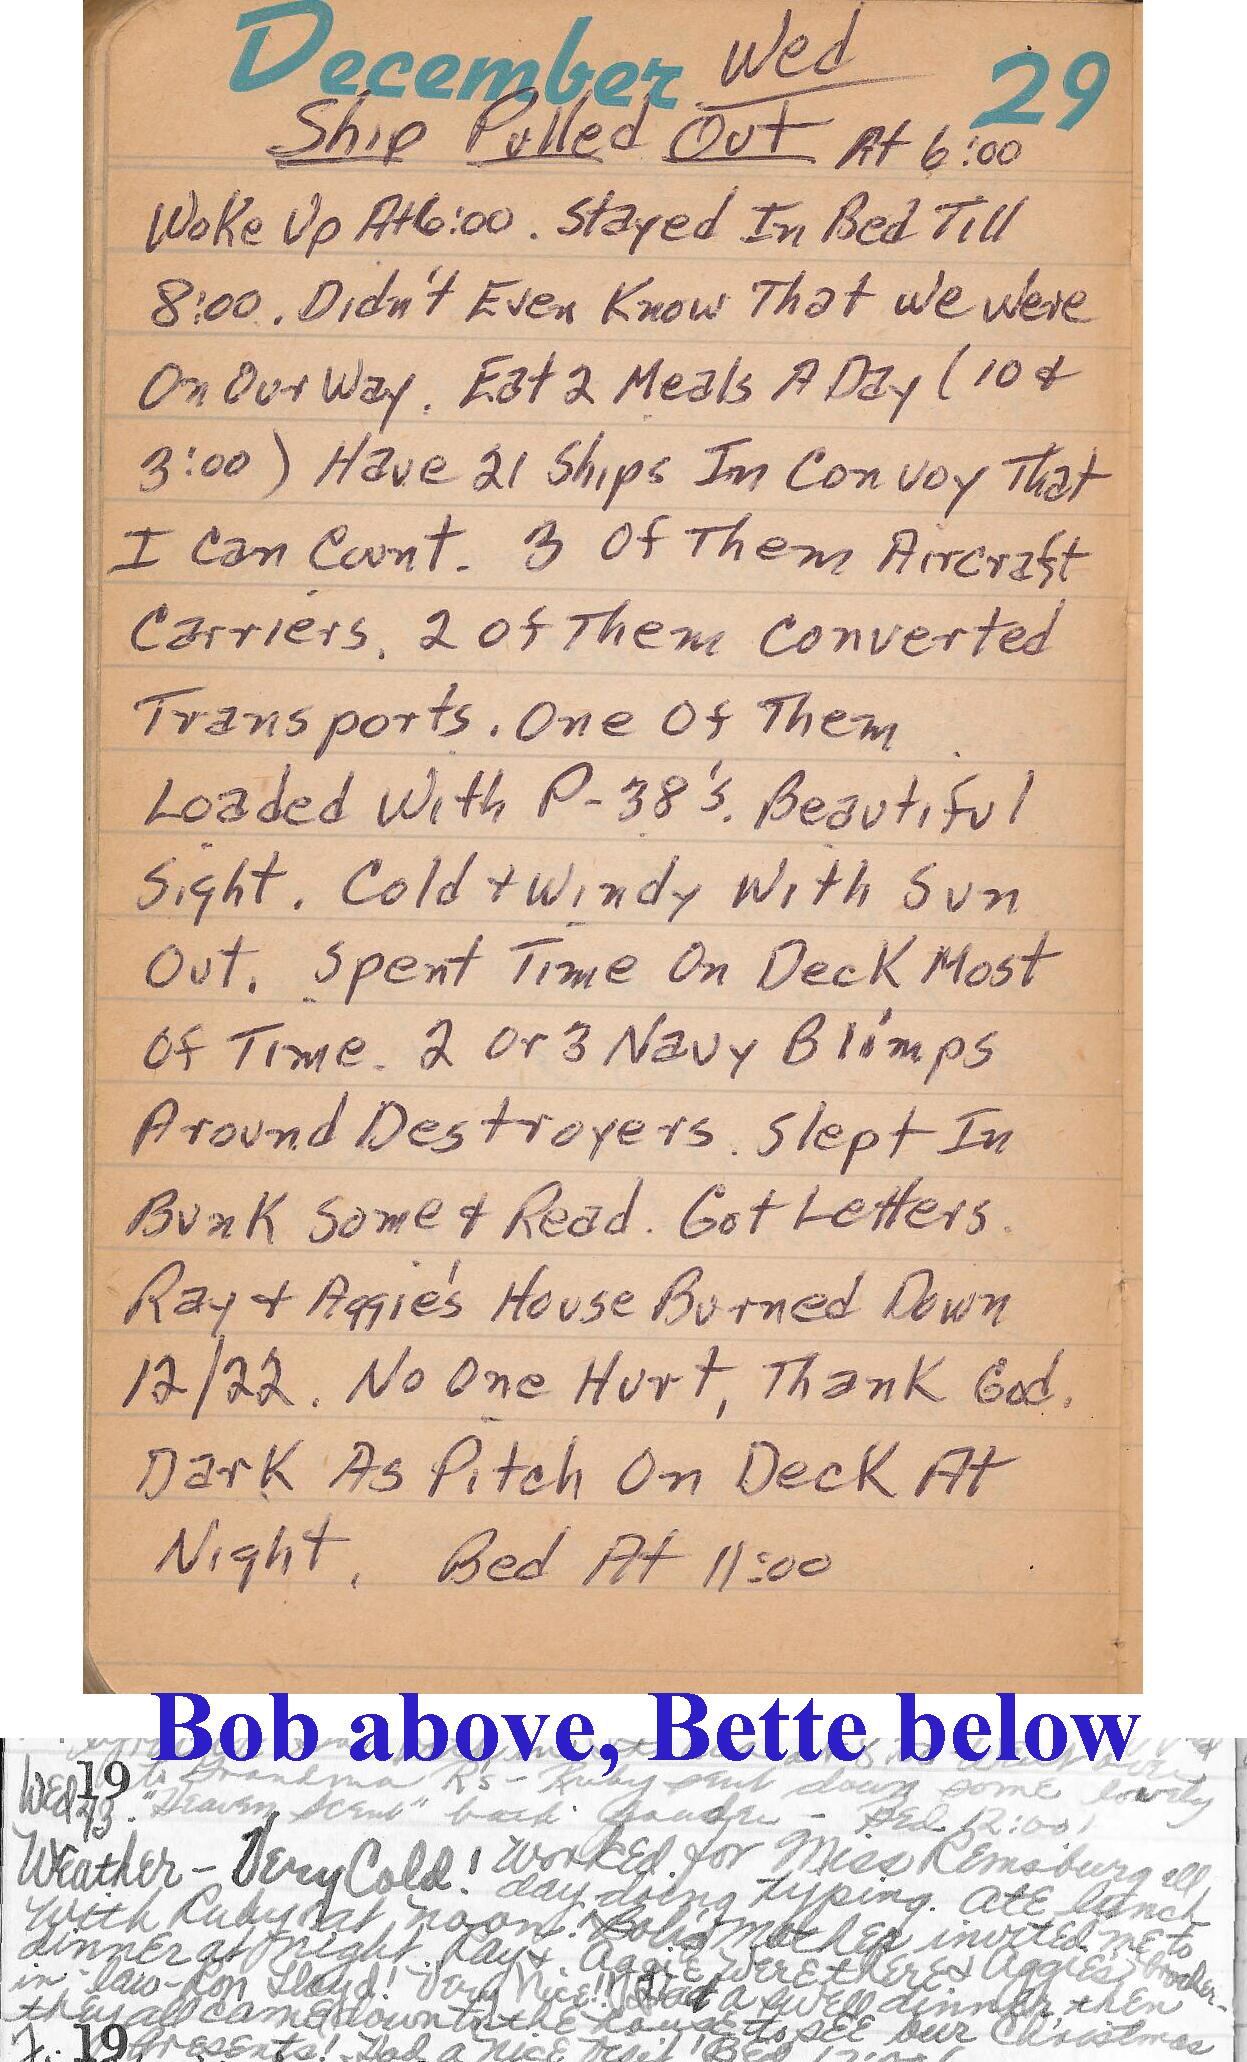 December Wed 29
Ship Pulled Out At 6:00
Woke Up At 6:00. Stayed In Bed Till
8:00. Didn't Even Know That We Were
On Our Way. Eat 2 Meals A Day (10 &
3:00) Have 21 Ships In Convoy That
I Can Count. 3 Of Them Aircraft
Carriers. 2 Of Them Converted
Transports. One Of Them
Loaded With P-38's. Beautiful
Sight. Cold + Windy With Sun
Out. Spent Time On Deck Most
Of Time. 2 Or 3 Navy Blimps
Around Destroyers. Slept In
Bunk Some & Read. Got Letters.
Ray + Aggie's House Burned Down
12/22. No One Hurt, Thank God.
Dark As Pitch On Deck At
Night. Bed At 11:00
Bob above, Bette below
19 to Grandma R's - Ruby sent down some lovely
Wed "Heaven Scent" bath powder - Bed 12:00!
Weather - Very Cold! Worked for Miss Remsburg all
day doing typing. Ate lunch
with Ruby at noon. Bob's mother invited me to
dinner at night. Ray & Aggie were there & Aggie's brother-
in-law - Ron Lloyd! Very Nice!! Had a swell dinner, then
they all came down to the house to see our Christmas
19 presents! Had a nice visit! Bed 12:00!